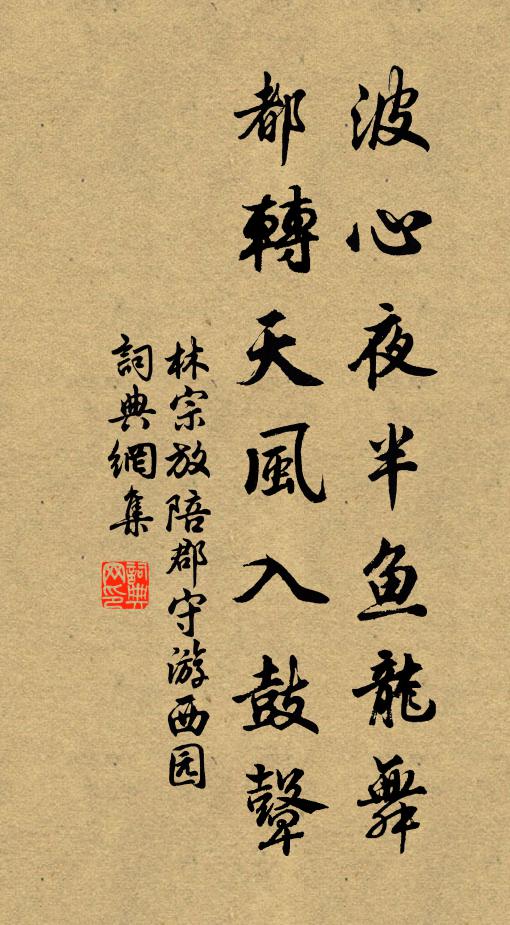 波心夜半鱼龍舞
都轉天風入鼓聲
林宗放陪郡守游西园
詞典網集
詞典网印